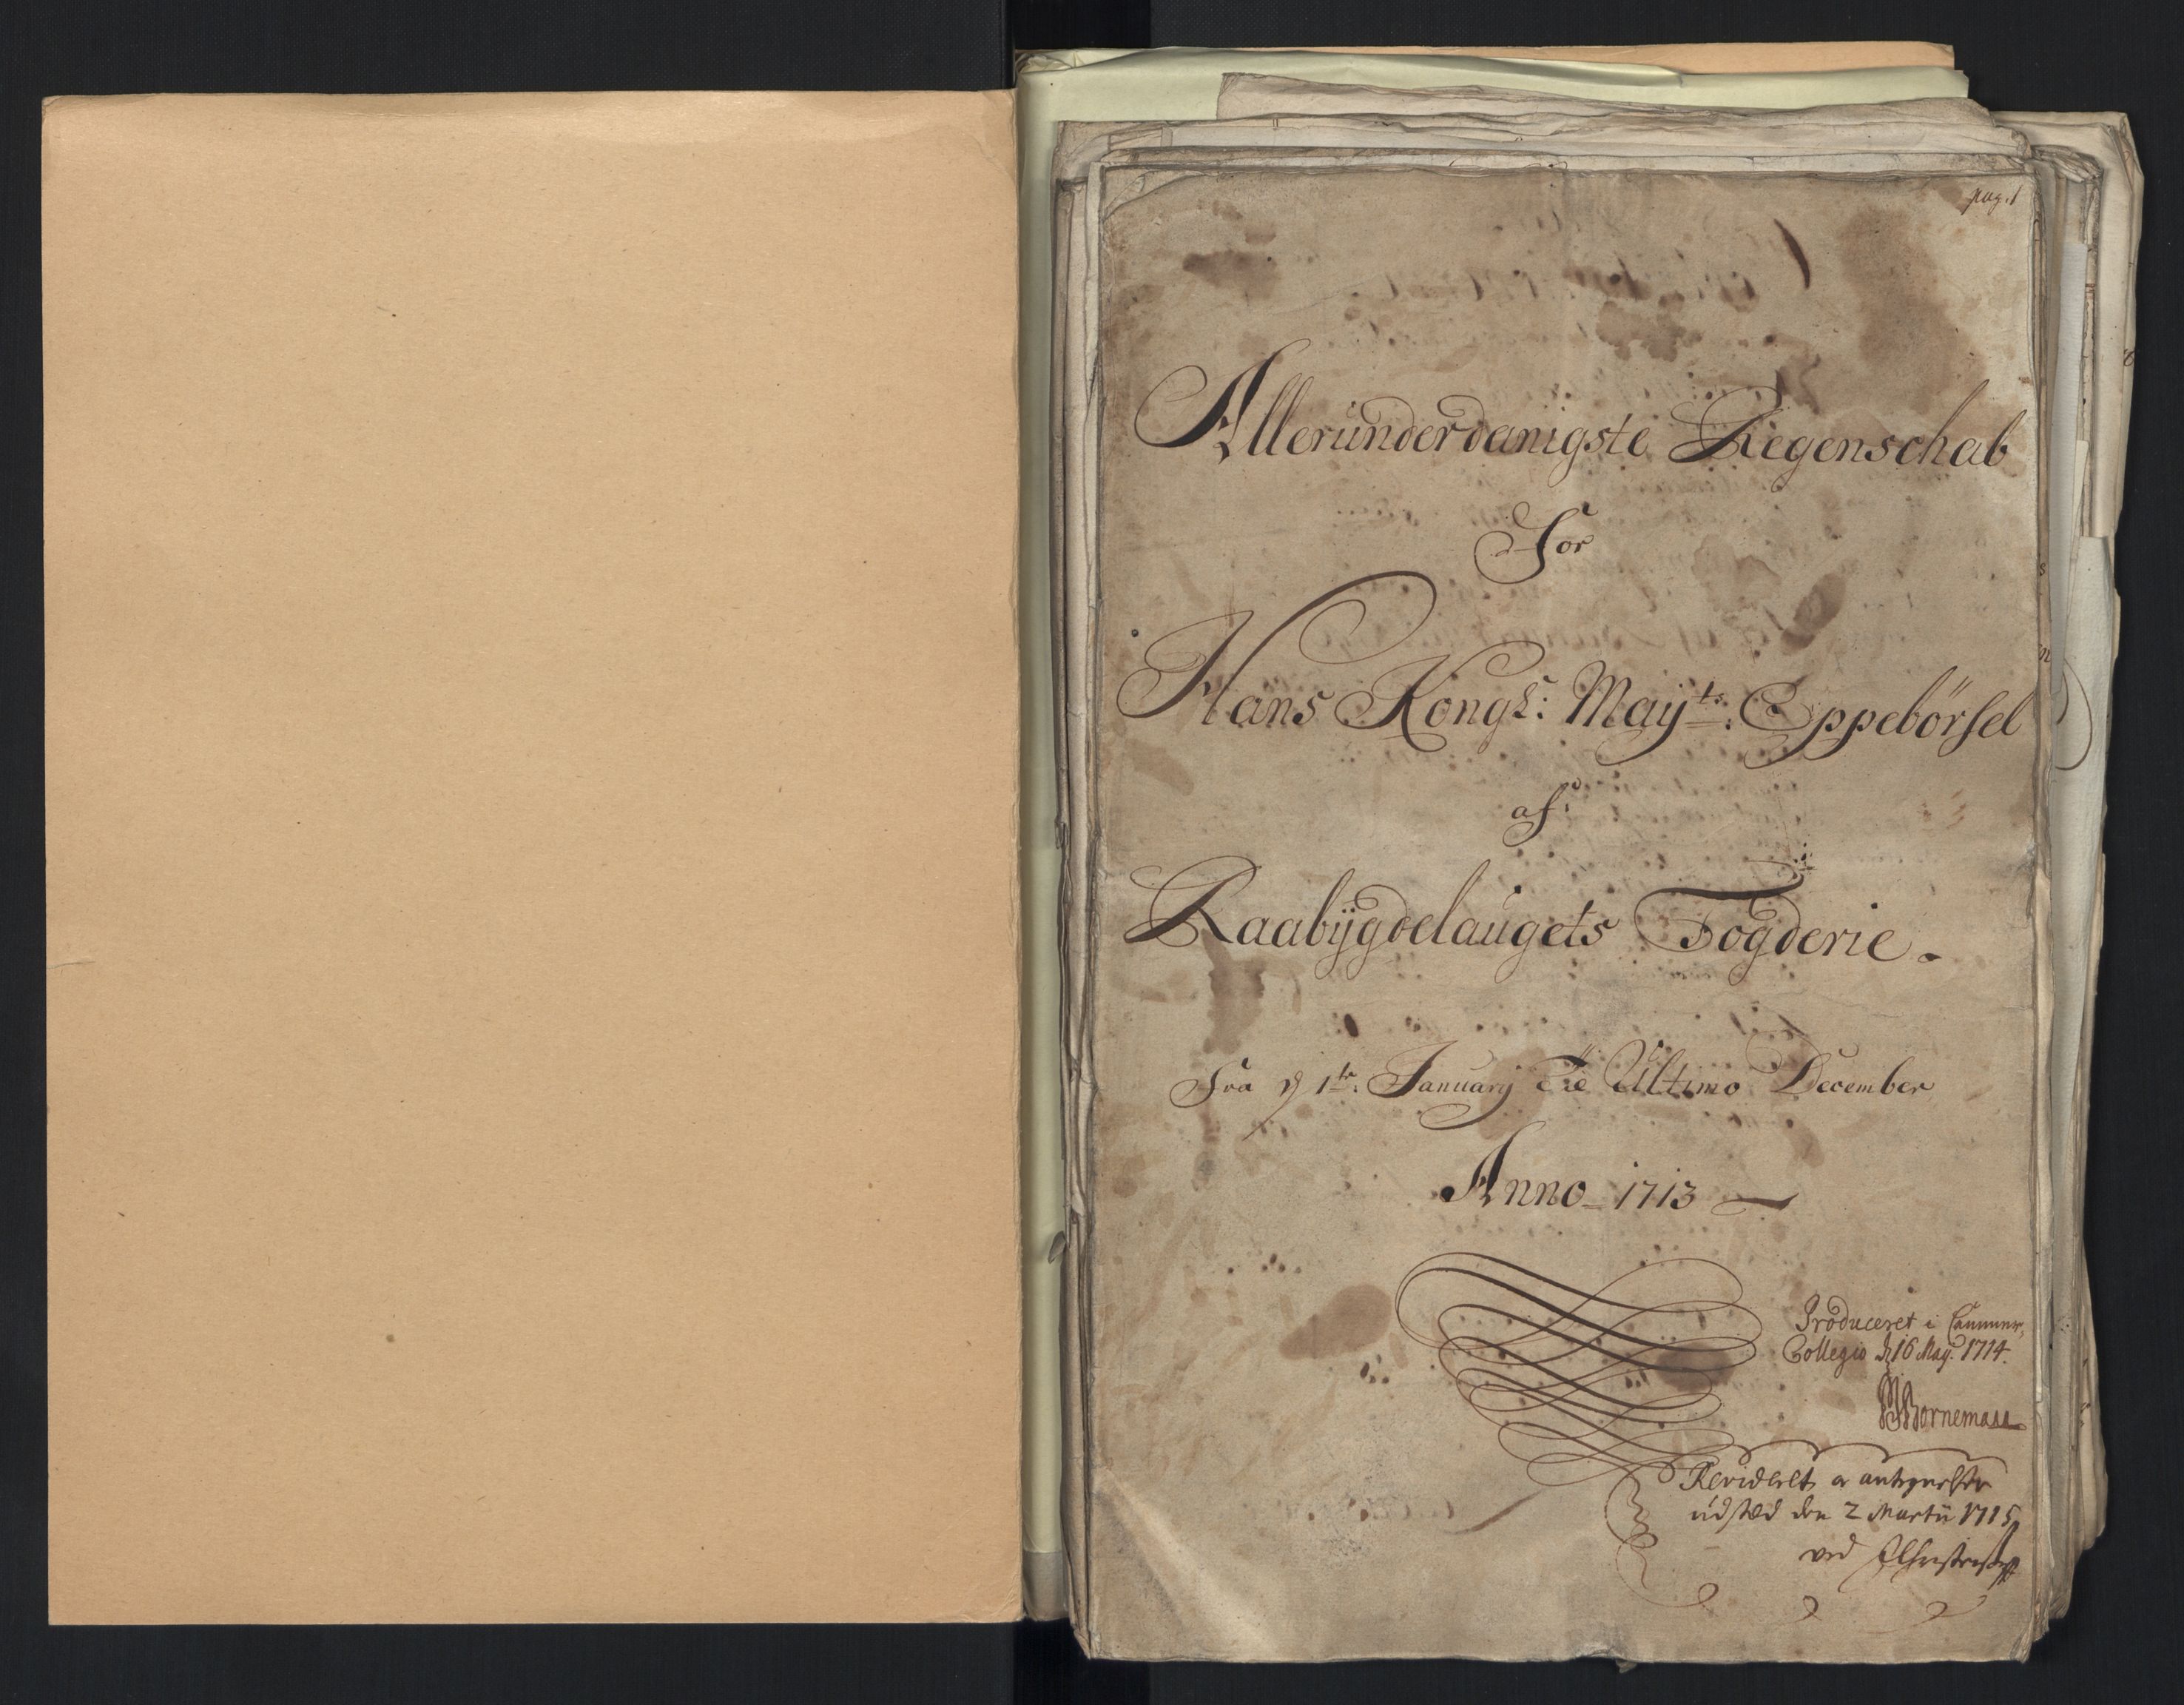 pag. 1
Alleründerdanigste Regenschab
For
Hans Kongl: Maÿts: Oppebørsel
af
Raabÿgdelaugets Fogderie.
Fra d 1te: Januarij Til Ultimo December
Anno 1713
Produceret i Cammer
Collegio d 16 Maÿ. 1714.
Bornemann
Revideret og
udsted den 2 Martii 1715
ved